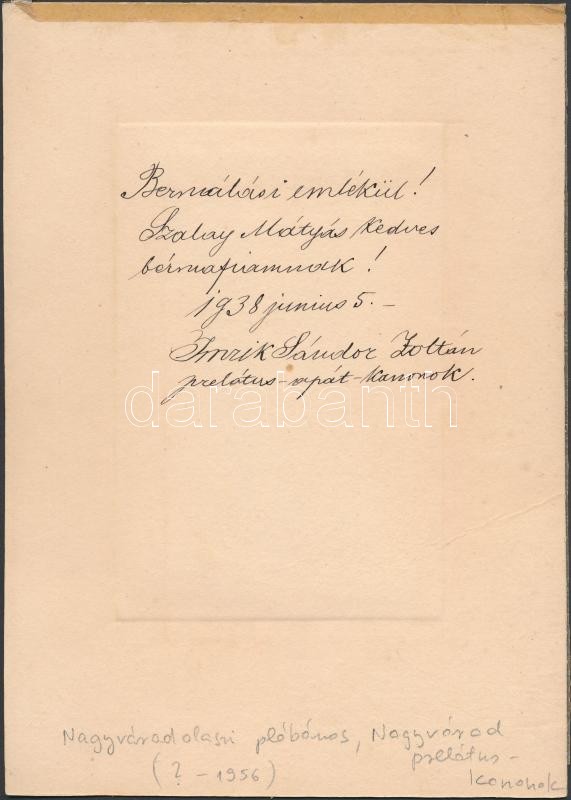 Bermálási emlékül!
Szalay Mátyás kedves
bérmafiamnak!
1938 junius 5. -
Imrik Sándor Zoltán
prelátus-apát-kanonok.
darabanth
Nagyváradolaszi plébános, Nagyvárad
prelátus -
kanonok
(? - 1956)